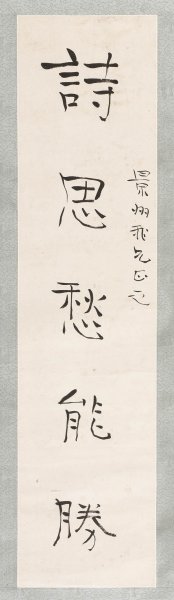 詩思愁能勝
景州飛兄正之